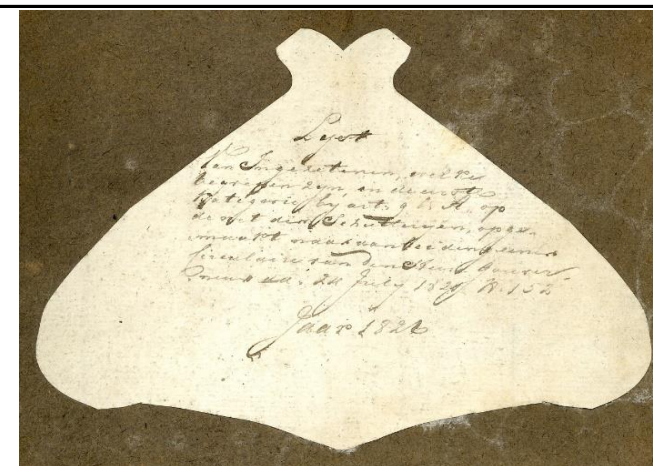 Lyst
Van Ingezetenen, welke
begrepen zyn, in de eerste
Kategorie by art: 9 L: A, op
de wet der Schutteryen, opge-
maakt naar aanleiding eener
Circulaire van den Heer Gouver-
neur dd: 24 July 182 N. 152
Jaar 182